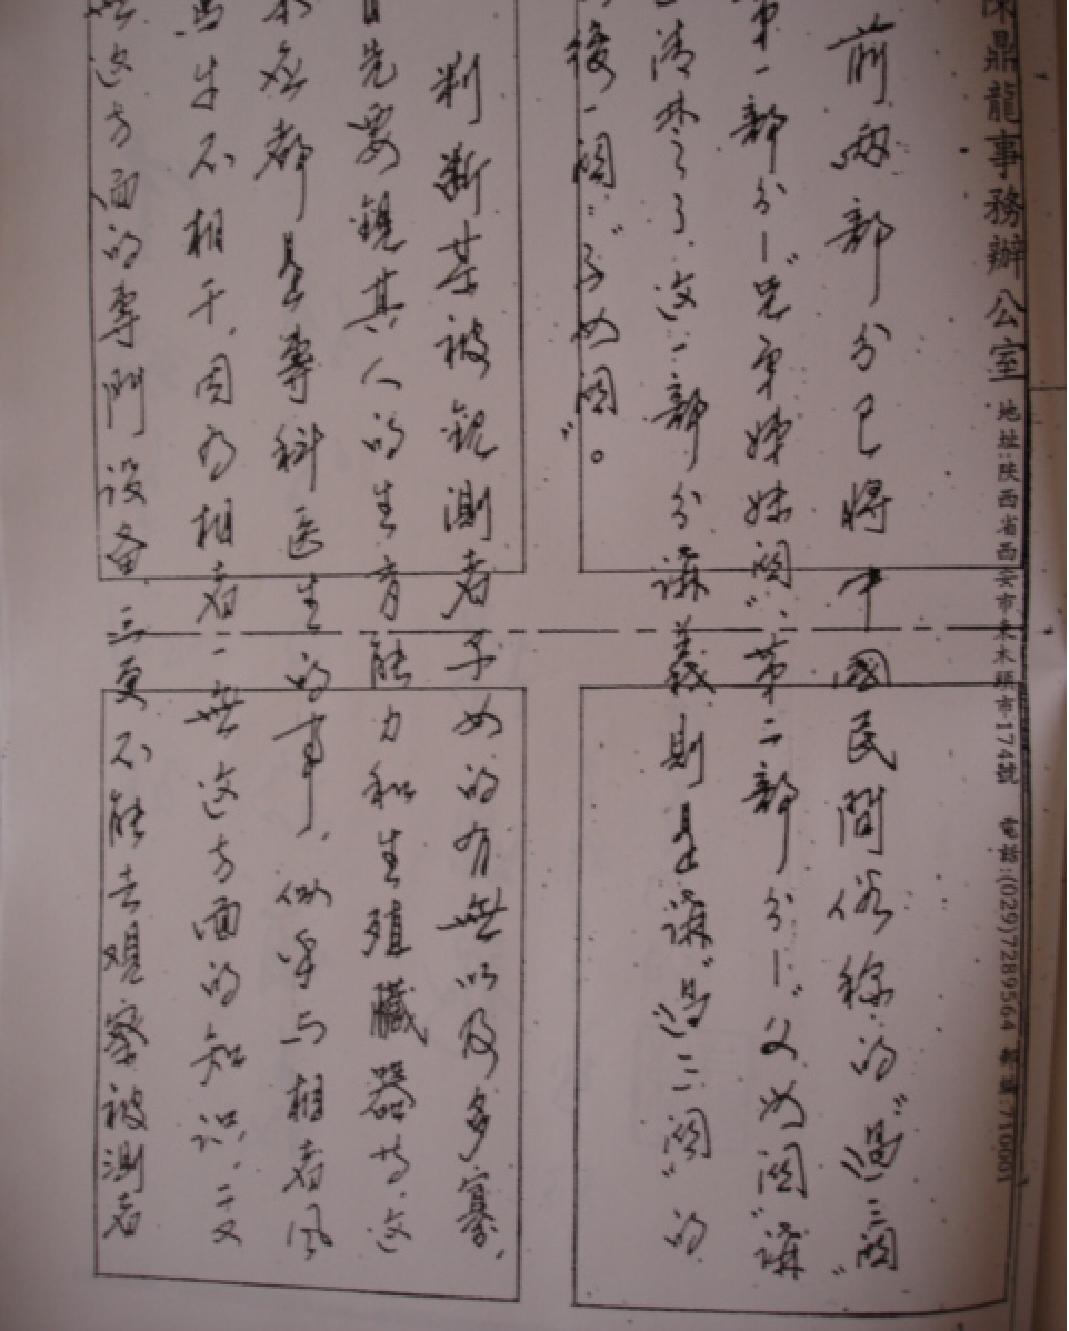 陳鼎龍事務辦公室 地址:陝西省西安市東木頭市174號 電話:(029)7289564 郵編:710001
前兩部分已將中國民間俗稱的“過三関”
第一部分—“兄弟姊妹関”、第二部分—“父母関”講
清楚了、这一部分講義則是講“過三関”的
後一関:“子女関”。
判断某被観測者子女的有無以及多寡，
首先要観其人的生育能力和生殖臓器等，这
都是專科医生的事，似乎与相者風
馬牛不相干，因为相者一無这方面的知识，二又
無这方面的專門设备，三更不能去观察被測者